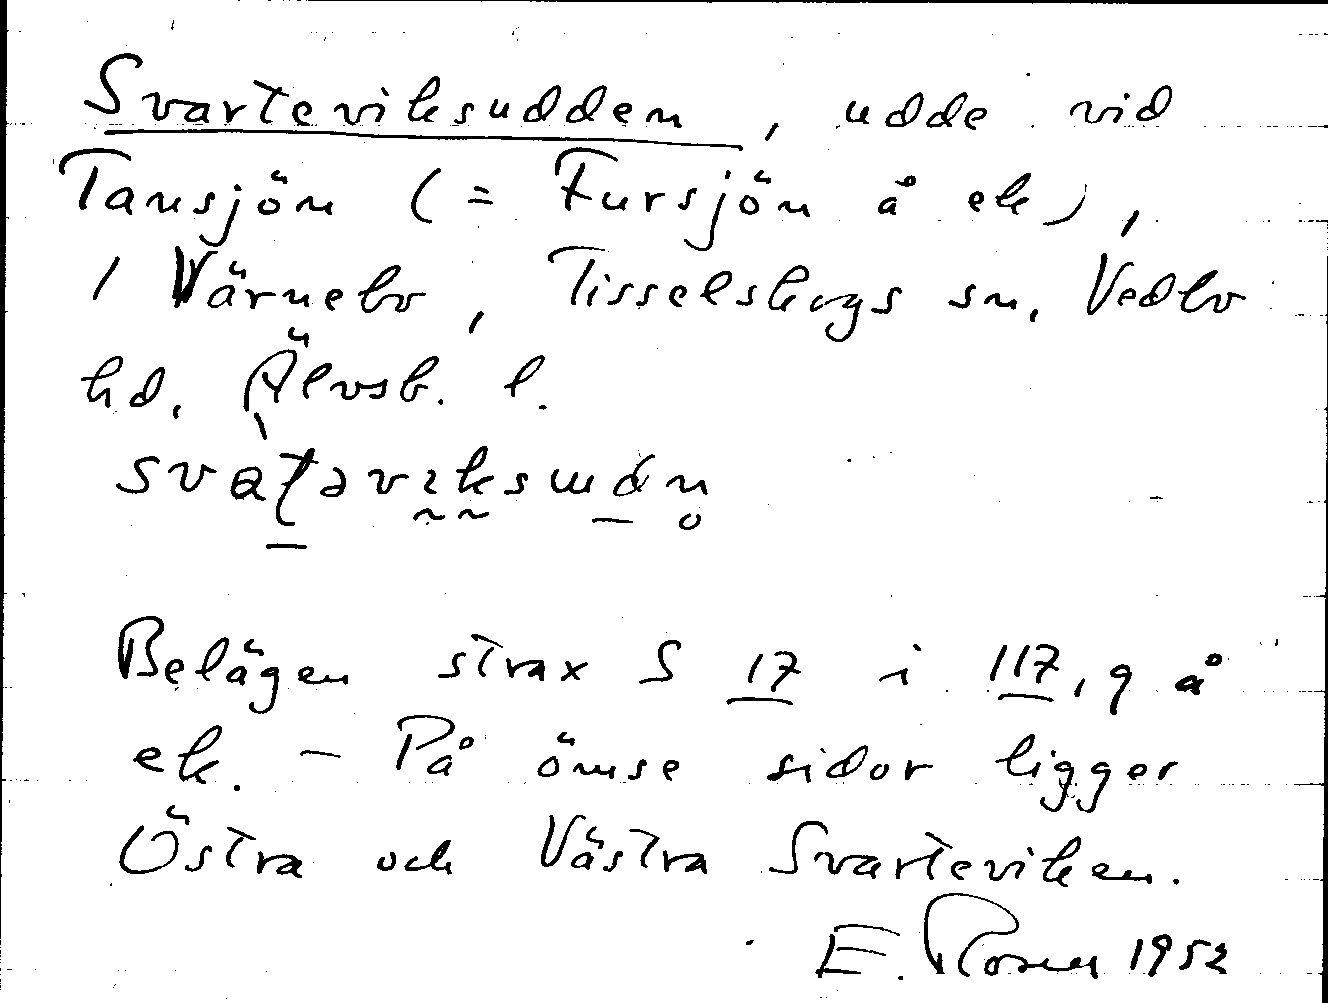 Svarteviksudden, udde vid
Tansjön (= Fursjön å ek),
1 Värnebo, Tisselskogs sn, Vedbo
hd. Älvsb. l.
Belägen strax S 17 i 117, 9 å
ek. – På ömse sidor ligger
Östra och Västra Svarteviken.
E. Rosen 1952